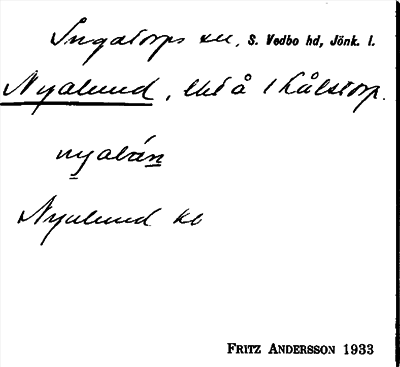 Ingatorps sn, S. Vedbo hd, Jönk. l.
Nyalund, lht å 1 Kålstorp.
nyalún
Nyalund kb
FRITZ ANDERSSON 1933